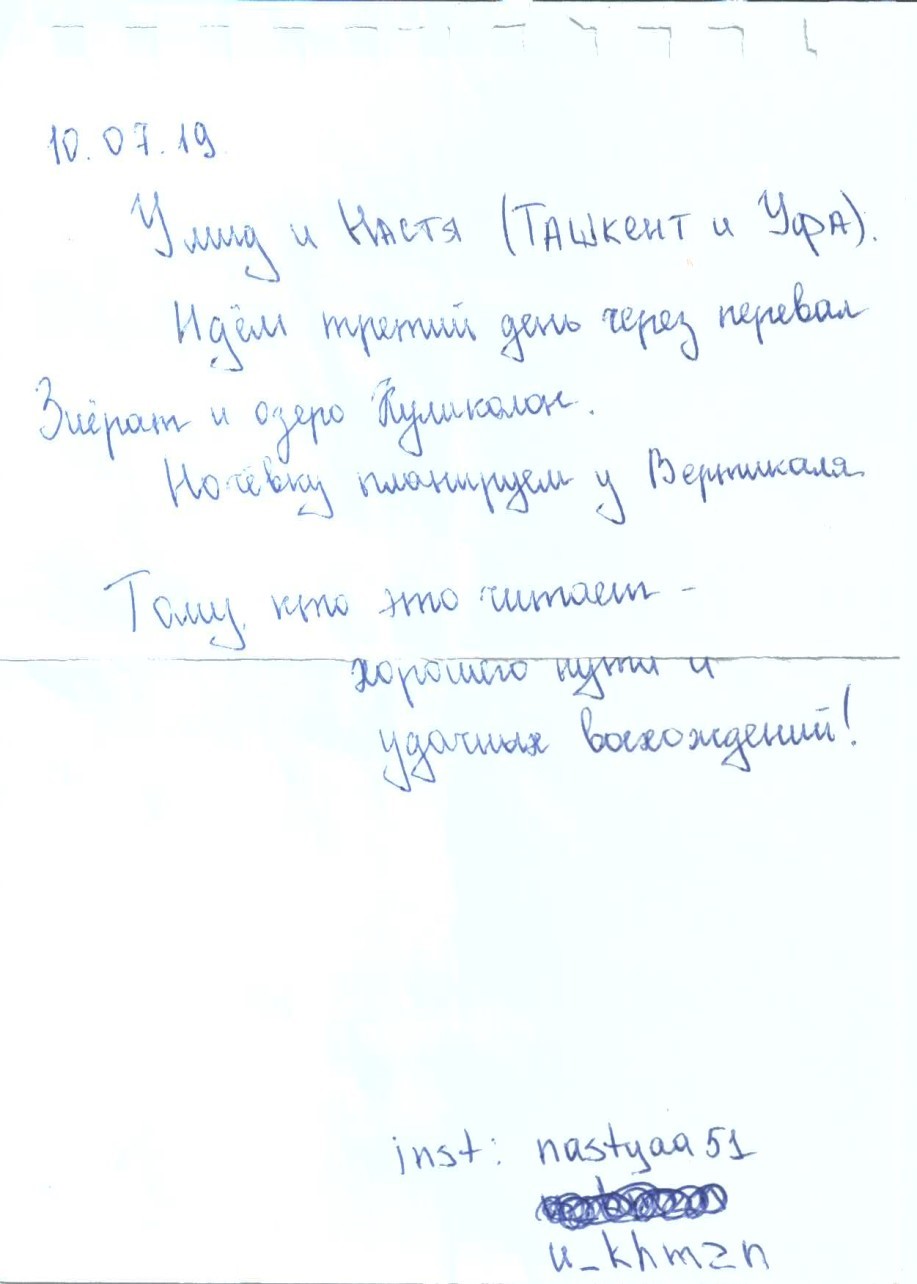 10.07.19
Умид и Настя (Ташкент и Уфа).
Идём третий день через перевал
Зиёрат и озеро Куликолон.
Ночёвку планируем у Вертикаля
Тому, кто это читает -
хорошего пути и
удачных восхождений!
inst: nastyaa51
u_khmzn